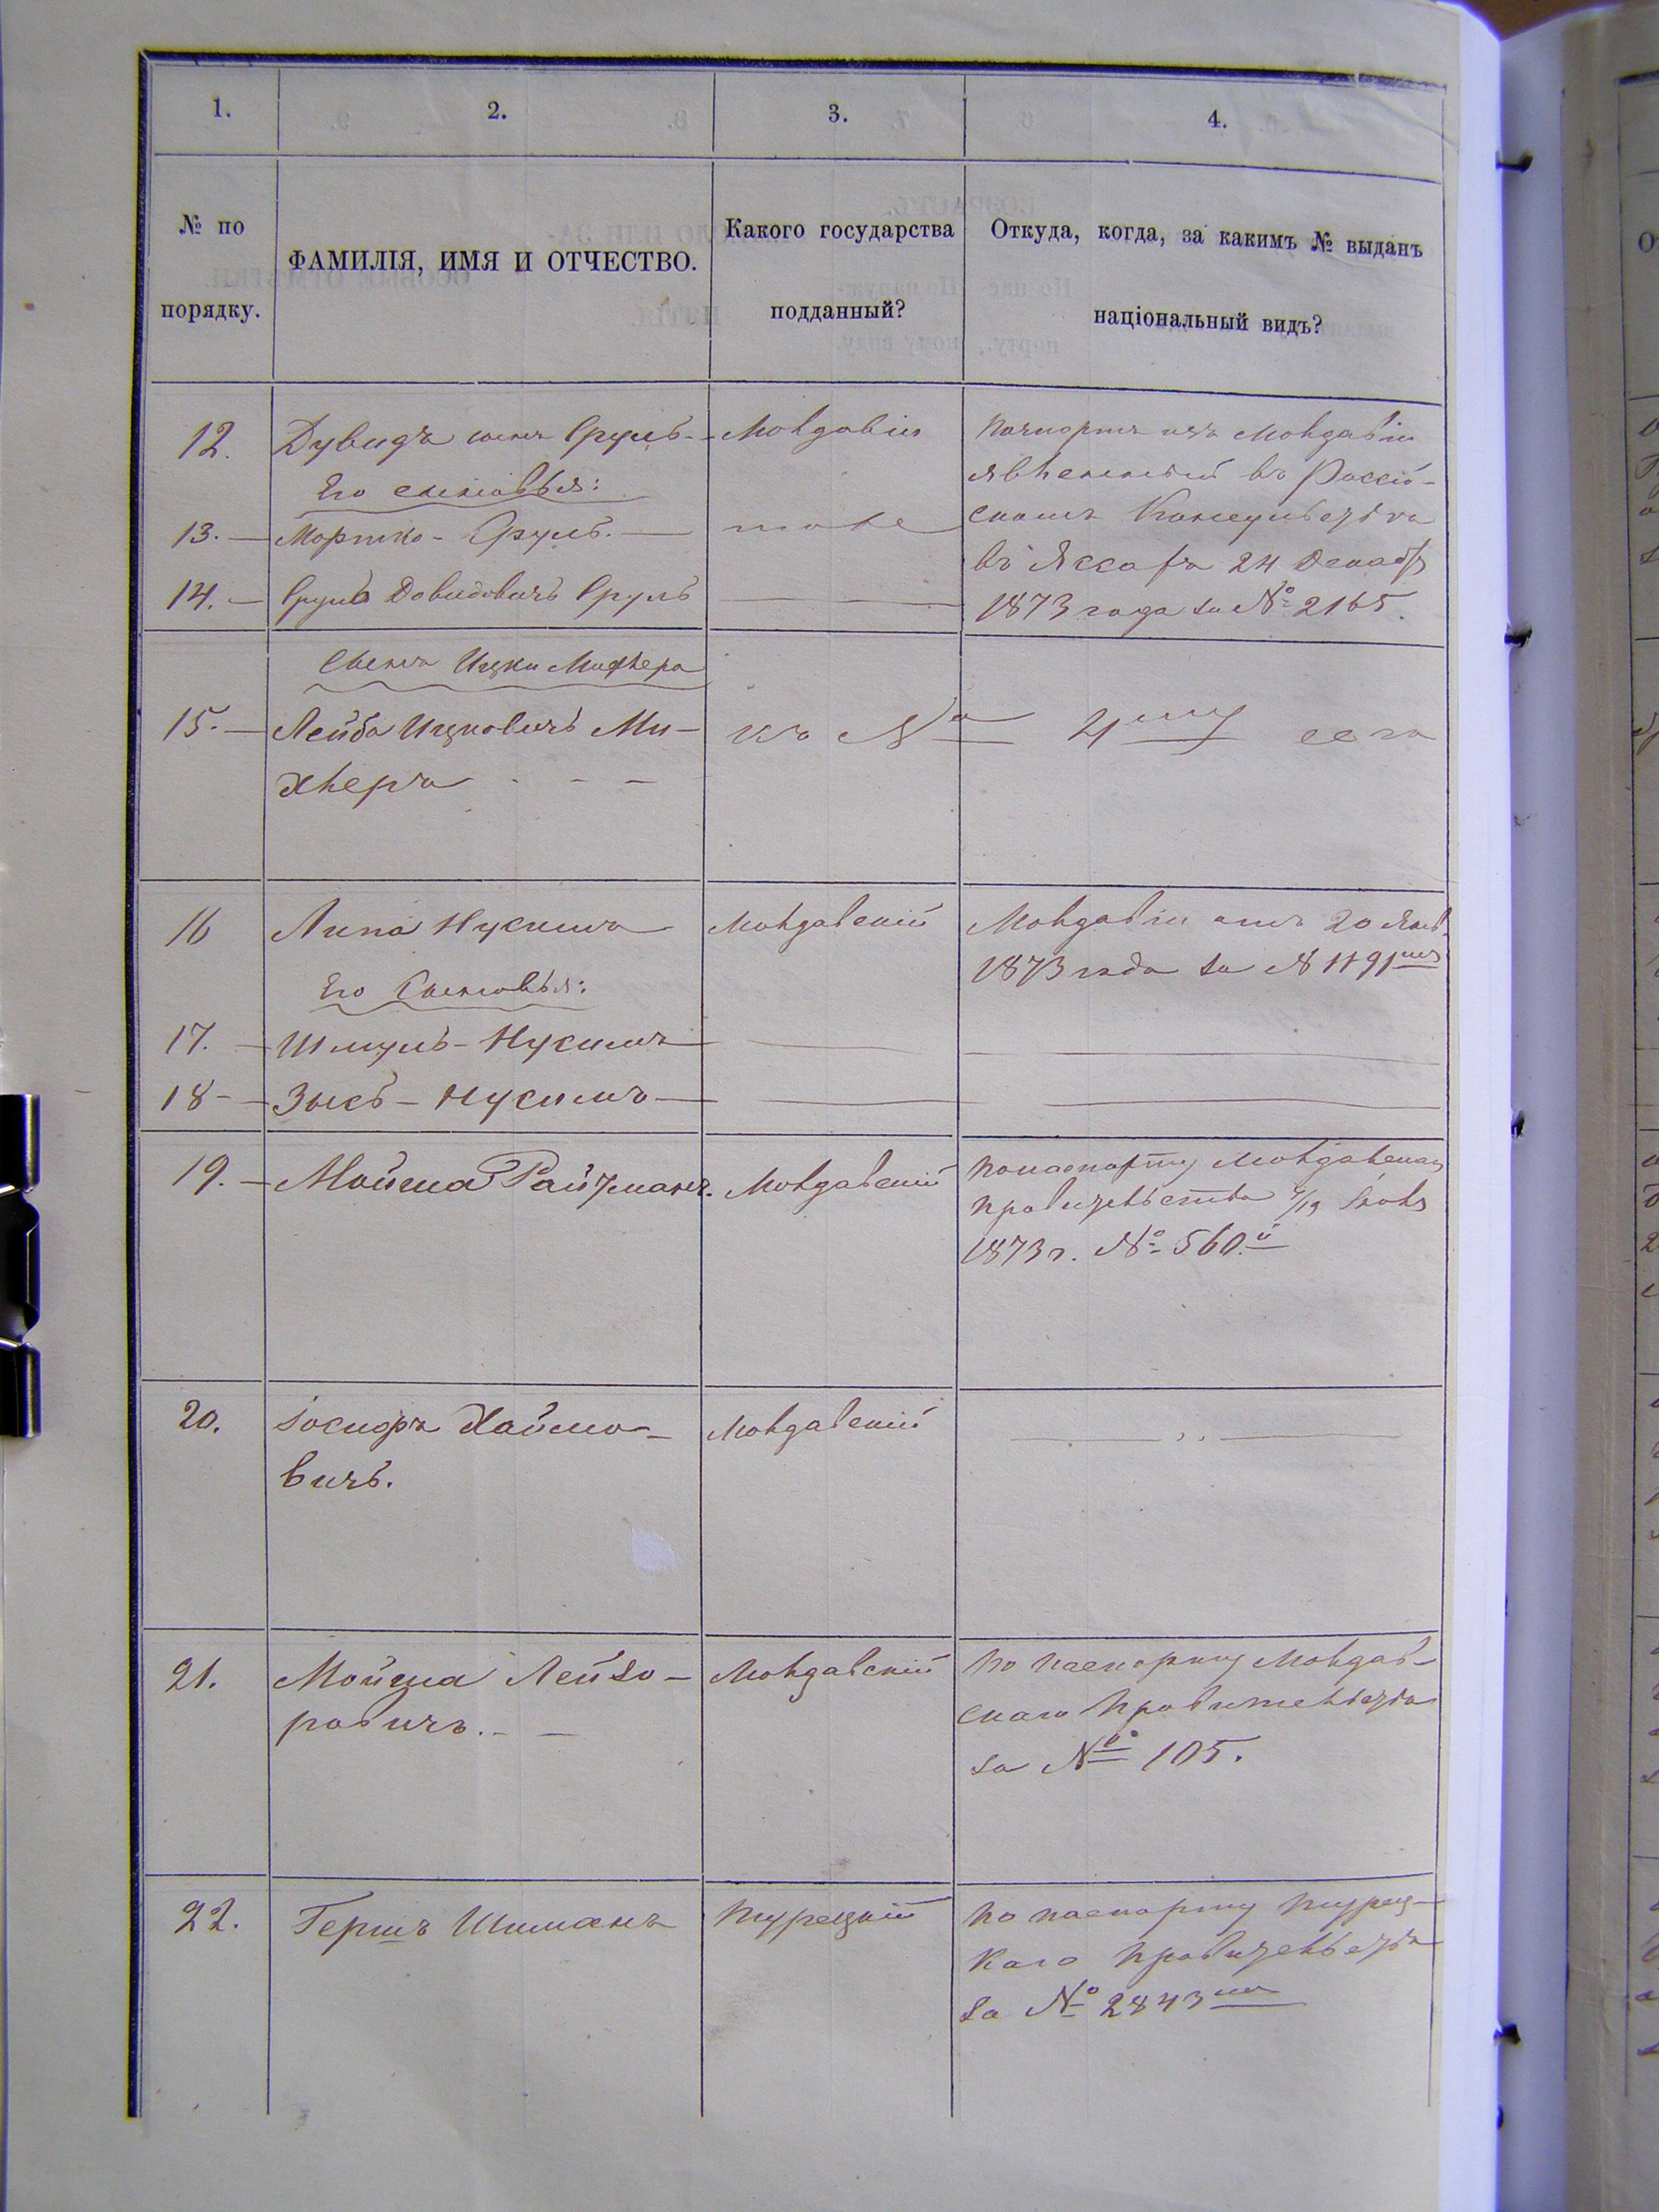 1. 2. 3. 4.
№ по порядку.
ФАМИЛІЯ, ИМЯ И ОТЧЕСТВО.
Какого государства подданный?
Откуда, когда, за какимъ № выданъ національный видъ?
12. Дувидъ сынъ Сруль - Молдавіи
Его сыновья:
13. — Мортко - Сруль. — тоже
14. — Сруль Довидовичъ Сруль
Пачпортъ изъ Молдавіи
явленный въ Россій-
скомъ Консульства
въ Яссахъ 24 Декабр
1873 года за № 2165.
Сынъ Ицки Михлера
15. — Лейба Ицковичъ Ми-
хлеръ - - -
къ № 4му
16 Липа Нусимъ Молдавскій
Молдавіи отъ 20 Янв
1873 года за № 1191мъ
Его Сыновья:
17. — Шмуль - Нусимъ
18 - — Зысь - Нусимъ
19. — Мойша Райзманъ. Молдавскій
По паспорту Молдавскаго
правительства
1873 г. № 560.й
20. Іосифъ Хаймо-
вичъ.
Молдавскій
21. Мойша Лейзо-
ровичъ. - —
Молдавскій
По паспорту Молдав-
скаго Правительства
за № 105.
22. Гершъ Шиманъ Турецкій
По паспорту Турец-
каго Правительства
за № 2843мъ